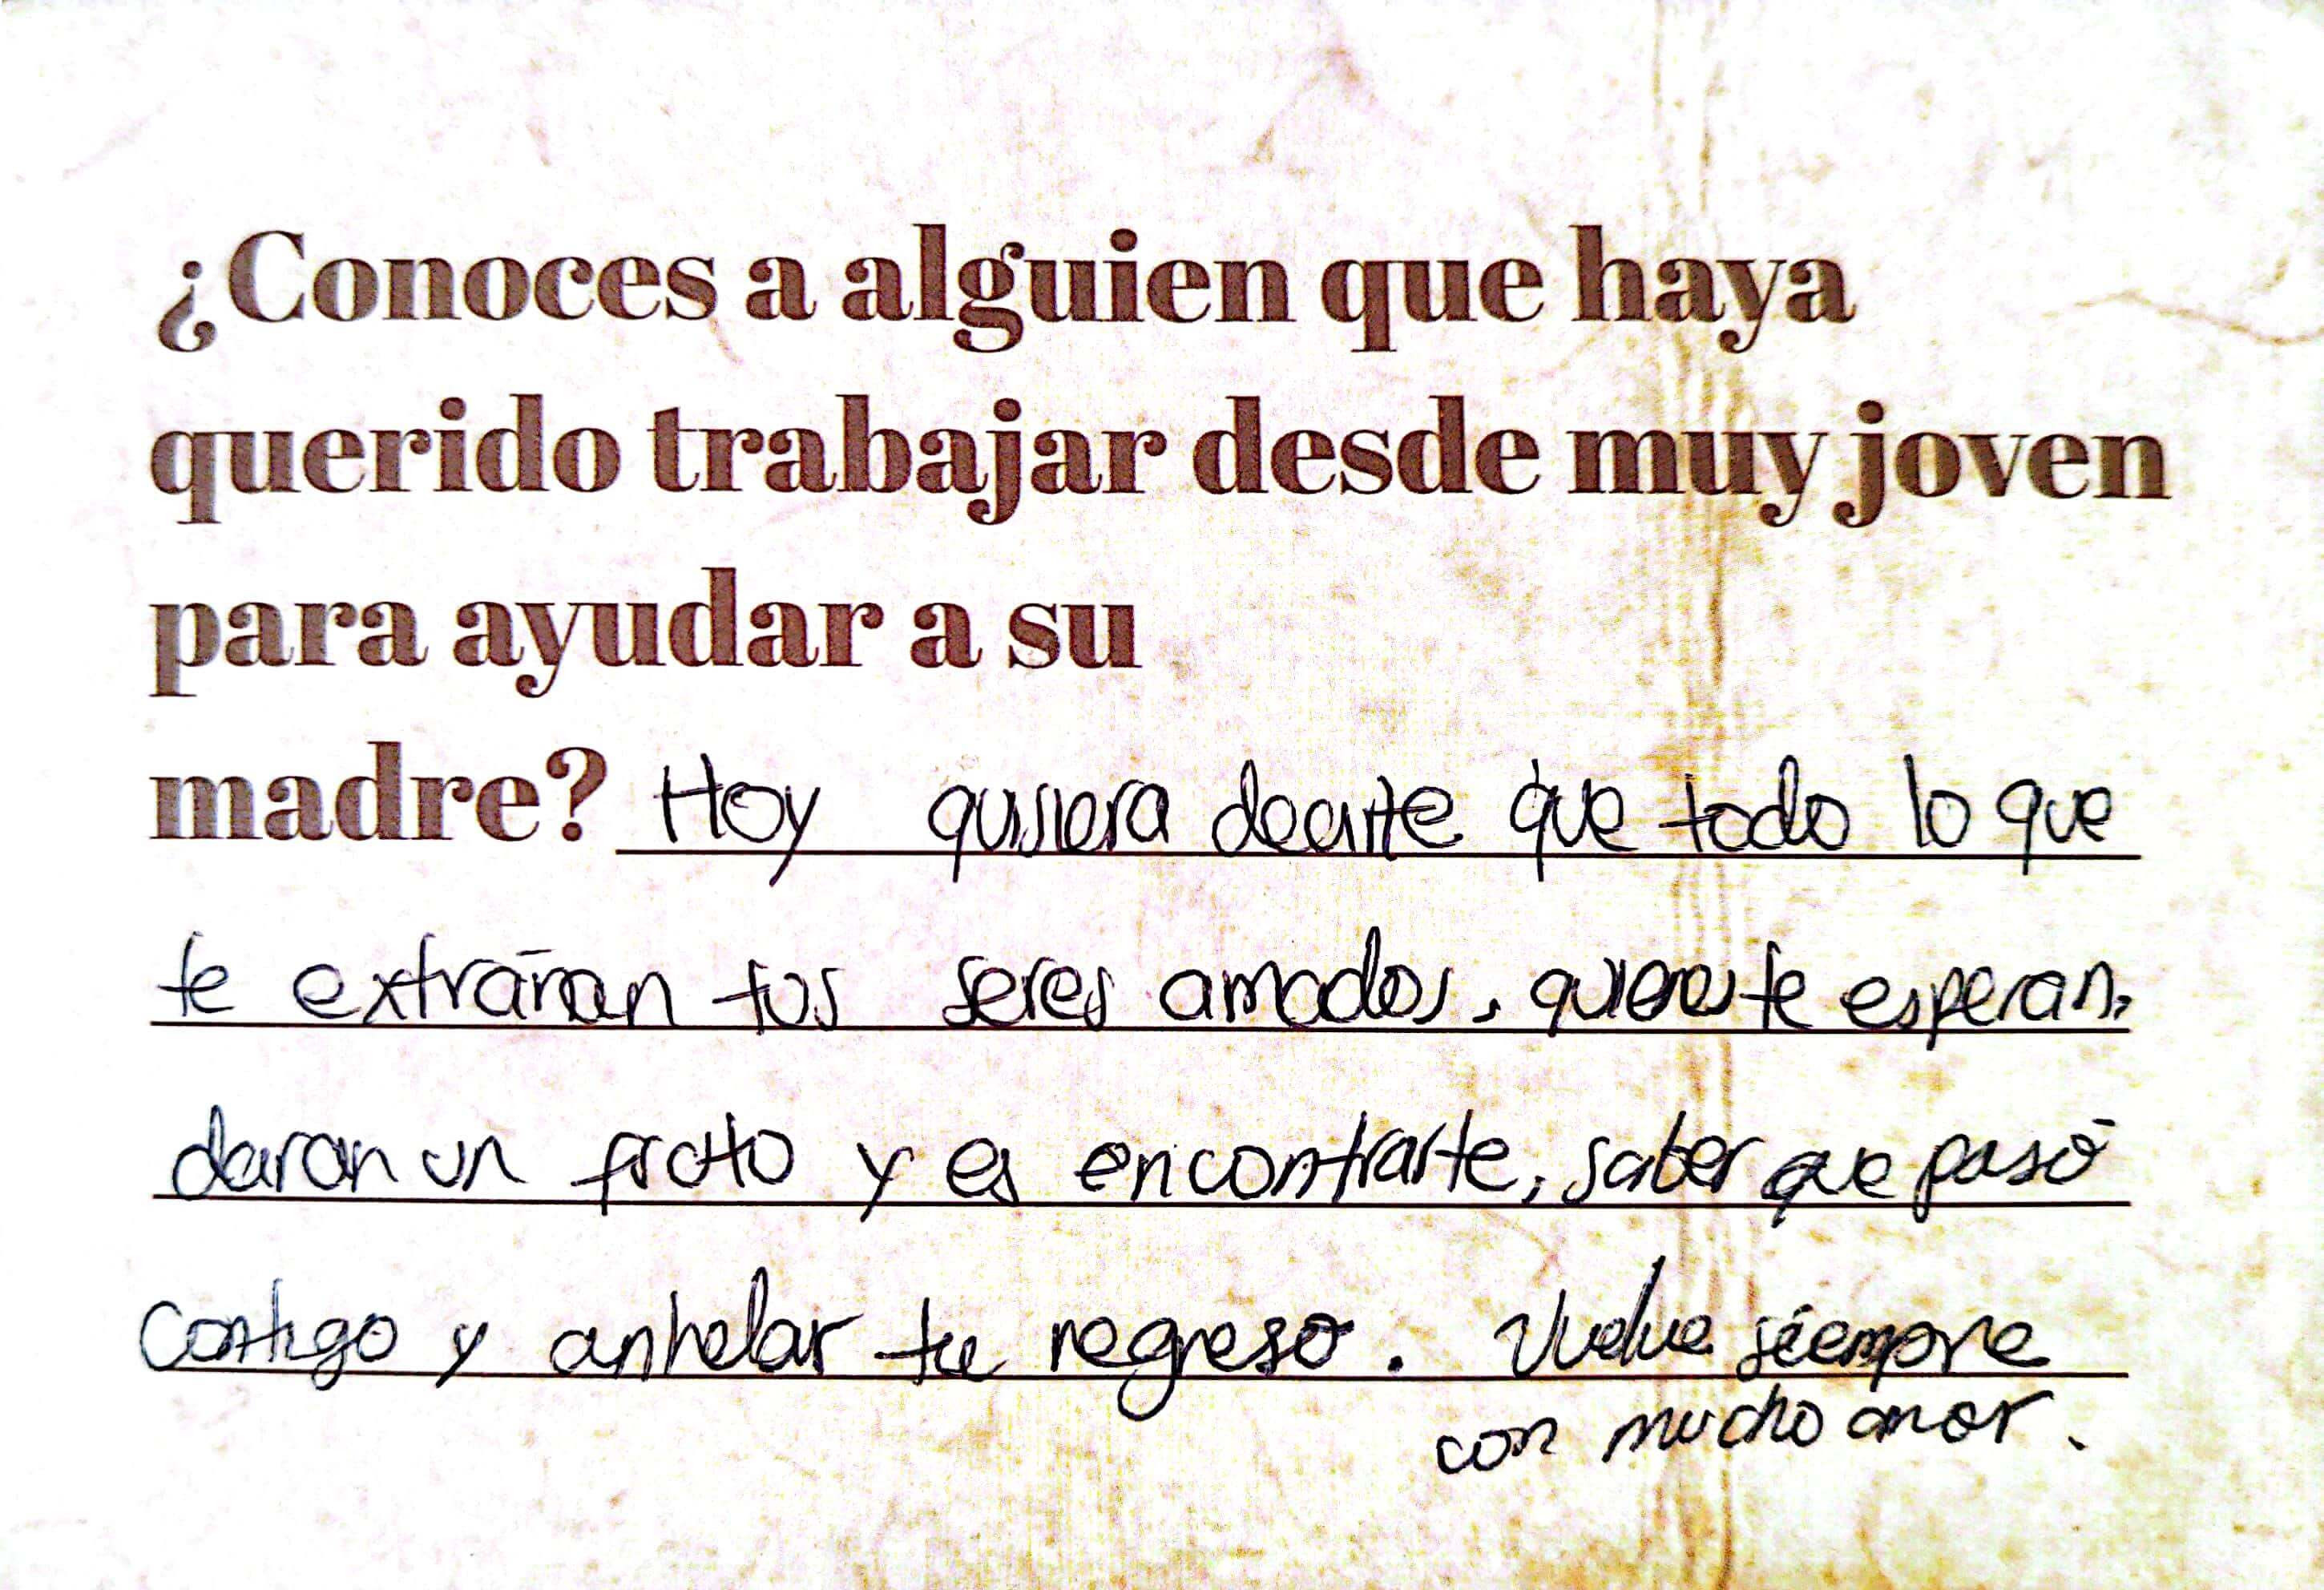 ¿Conoces a alguien que haya
querido trabajar desde muy joven
para ayudar a su
madre? Hoy quisiera decirte que todo lo que
te extrañan tus seres amados, quienes te esperan,
daran un fruto y es encontrarte, saber que pasó
contigo y anhelar tu regreso. Vuelve siempre
con mucho amor.